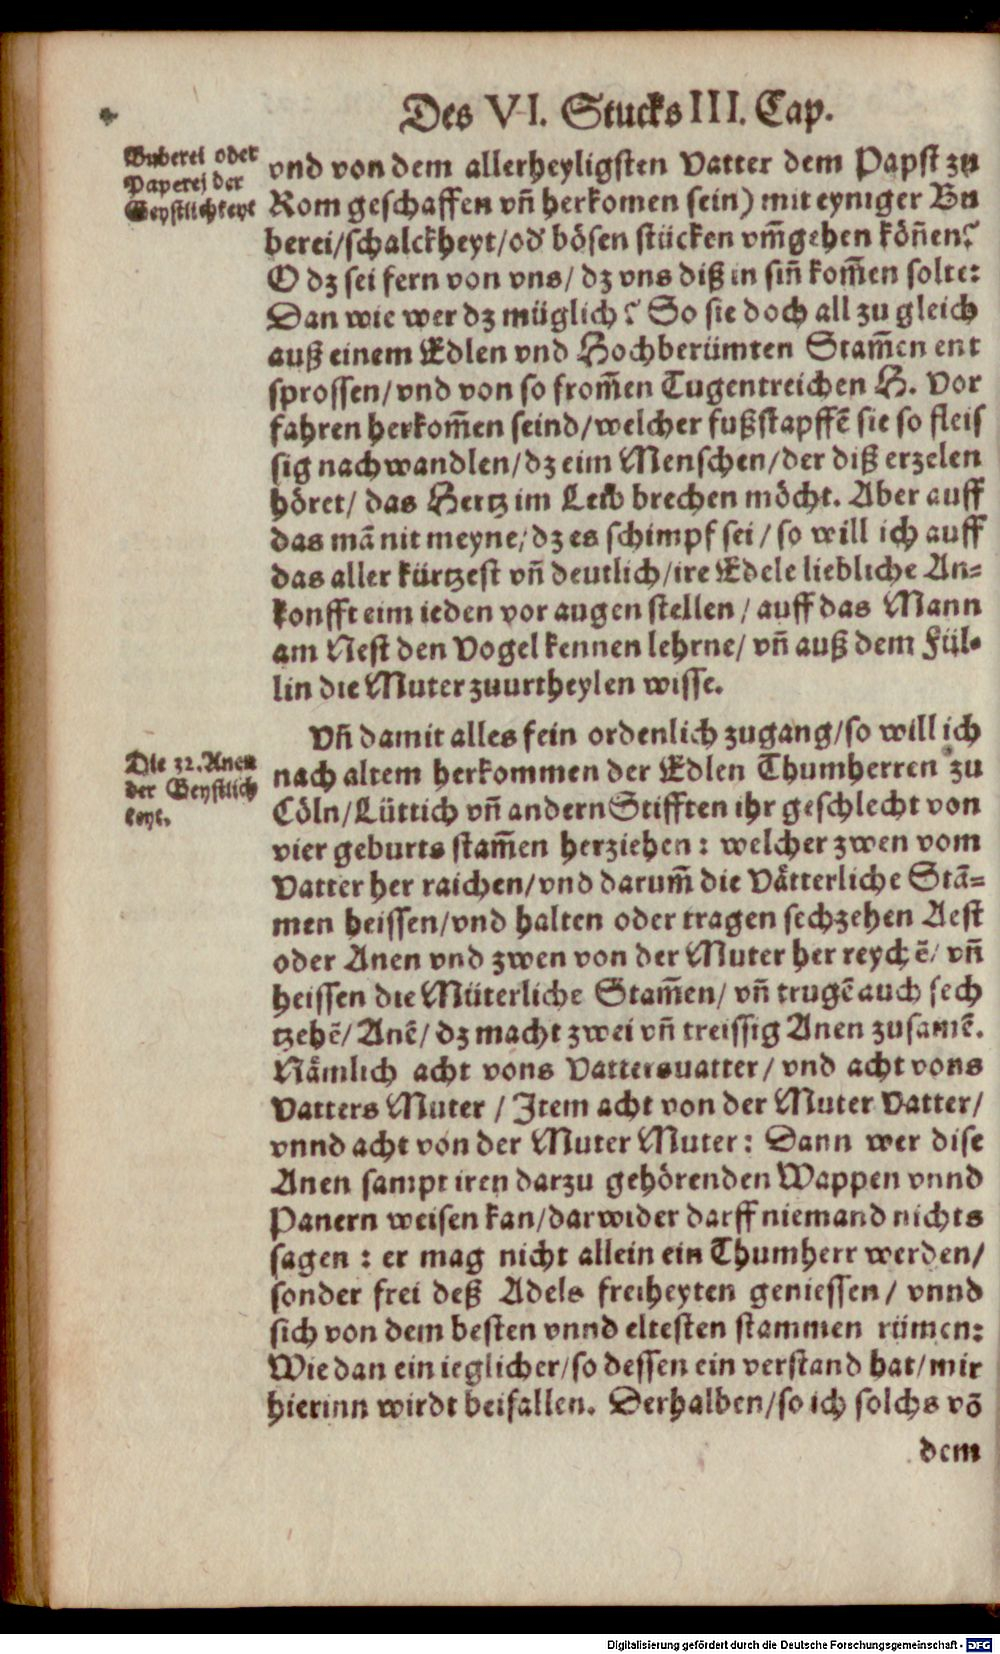 Des VI. Stucks III. Cap.
Buberei oder
Paperei der
Geystlichkeyt
vnd von dem allerheyligsten Vatter dem Papst zu
Rom geschaffen vñ herkomen sein) mit eyniger Bu
berei/schalckheyt/od' bösen stücken vm̃gehen köñen?
O dz sei fern von vns/ dz vns diß in siñ kom̃en solte:
Dan wie wer dz müglich? So sie doch all zu gleich
auß einem Edlen vnd Hochberümten Stam̃en ent
sprossen/vnd von so from̃en Tugentreichen H. Vor
fahren herkom̃en seind/welcher fußstapffẽ sie so fleis
sig nachwandlen/dz eim Menschen/der diß erzelen
höret/ das Hertz im Leib brechen möcht. Aber auff
das mã nit meyne/dz es schimpf sei / so will ich auff
das aller kürtzest vñ deutlich/ire Edele liebliche An=
konfft eim ieden vor augen stellen / auff das Mann
am Nest den Vogel kennen lehrne/ vñ auß dem Fül=
lin die Muter zuurtheylen wisse.
Vñ damit alles fein ordenlich zugang/so will ich
Die 32. Anen
der Geystlich
keyt.
nach altem herkommen der Edlen Thumherren zu
Cöln/Lüttich vñ andern Stifften ihr geschlecht von
vier geburts stam̃en herziehen: welcher zwen vom
Vatter her raichen/vnd darum̃ die Vätterliche Stã=
men heissen/vnd halten oder tragen sechzehen Aest
oder Anen vnd zwen von der Muter her reychẽ/ vñ
heissen die Müterliche Stam̃en/ vñ trugẽ auch sech
tzehẽ/ Anẽ/ dz macht zwei vñ treissig Anen zusamẽ.
Nämlich acht vons Vattersvatter/ vnd acht vons
Vatters Muter / Item acht von der Muter Vatter/
vnnd acht von der Muter Muter: Dann wer dise
Anen sampt iren darzu gehörenden Wappen vnnd
Panern weisen kan/darwider darff niemand nichts
sagen : er mag nicht allein ein Thumherr werden/
sonder frei deß Adels freiheyten geniessen/ vnnd
sich von dem besten vnnd eltesten stammen rümen:
Wie dan ein ieglicher/so dessen ein verstand hat/mir
hierinn wirdt beifallen. Derhalben/so ich solchs võ
dem
Digitalisierung gefördert durch die Deutsche Forschungsgemeinschaft - DFG